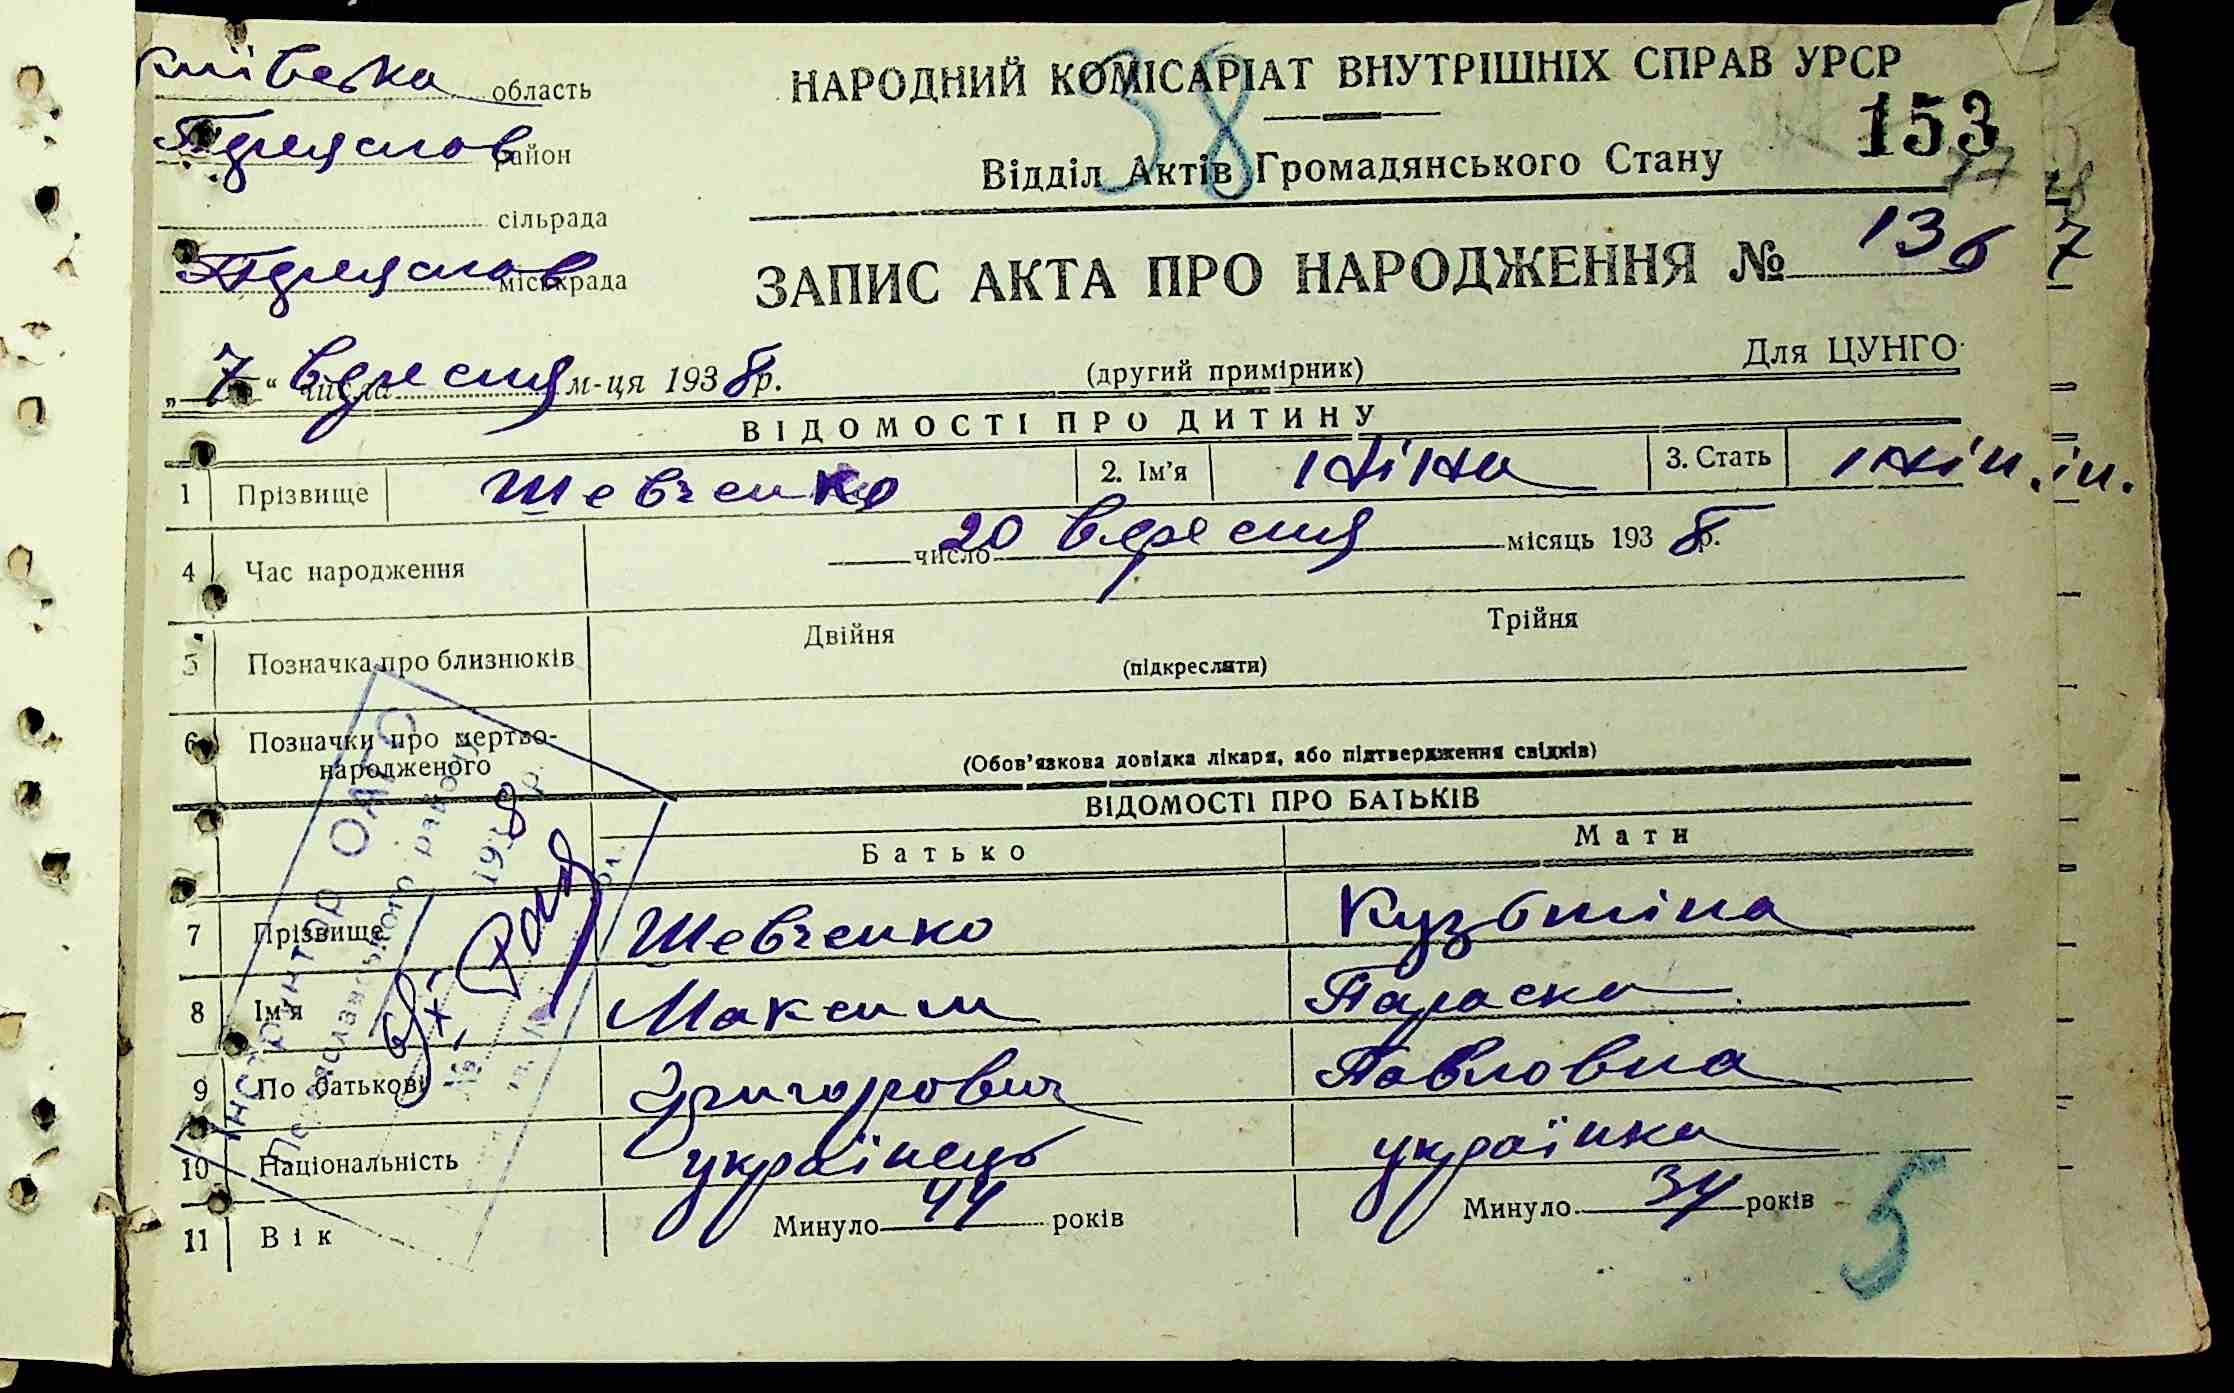 Київська область
НАРОДНИЙ КОМІСАРІАТ ВНУТРІШНІХ СПРАВ УРСР
38
153
77
Переяслов район
Відділ Актів Громадянського Стану
сільрада
Переяслов міськрада
ЗАПИС АКТА ПРО НАРОДЖЕННЯ № 136
7
„7“ числа вересня м-ця 1938 р.
(другий примірник)
Для ЦУНГО
ВІДОМОСТІ ПРО ДИТИНУ
1 Прізвище Шевченко 2. Ім’я Ніна 3. Стать жін.
ін.
4 Час народження число 20 вересня місяць 1938 р.
5 Позначка про близнюків Двійня Трійня
(підкреслити)
6 Позначки про мертво-
народженого
(Обов’язкова довідка лікаря, або підтвердження свідків)
ВІДОМОСТІ ПРО БАТЬКІВ
Батько Мати
7 Прізвище Шевченко Кузьміна
8 Ім’я Максим Параска
9 По батькові Григорович Павловна
10 Національність українець українка
11 Вік Минуло 44 років Минуло 34 років
5
Інспектор ОАГС
Переяславського району
1938 р.